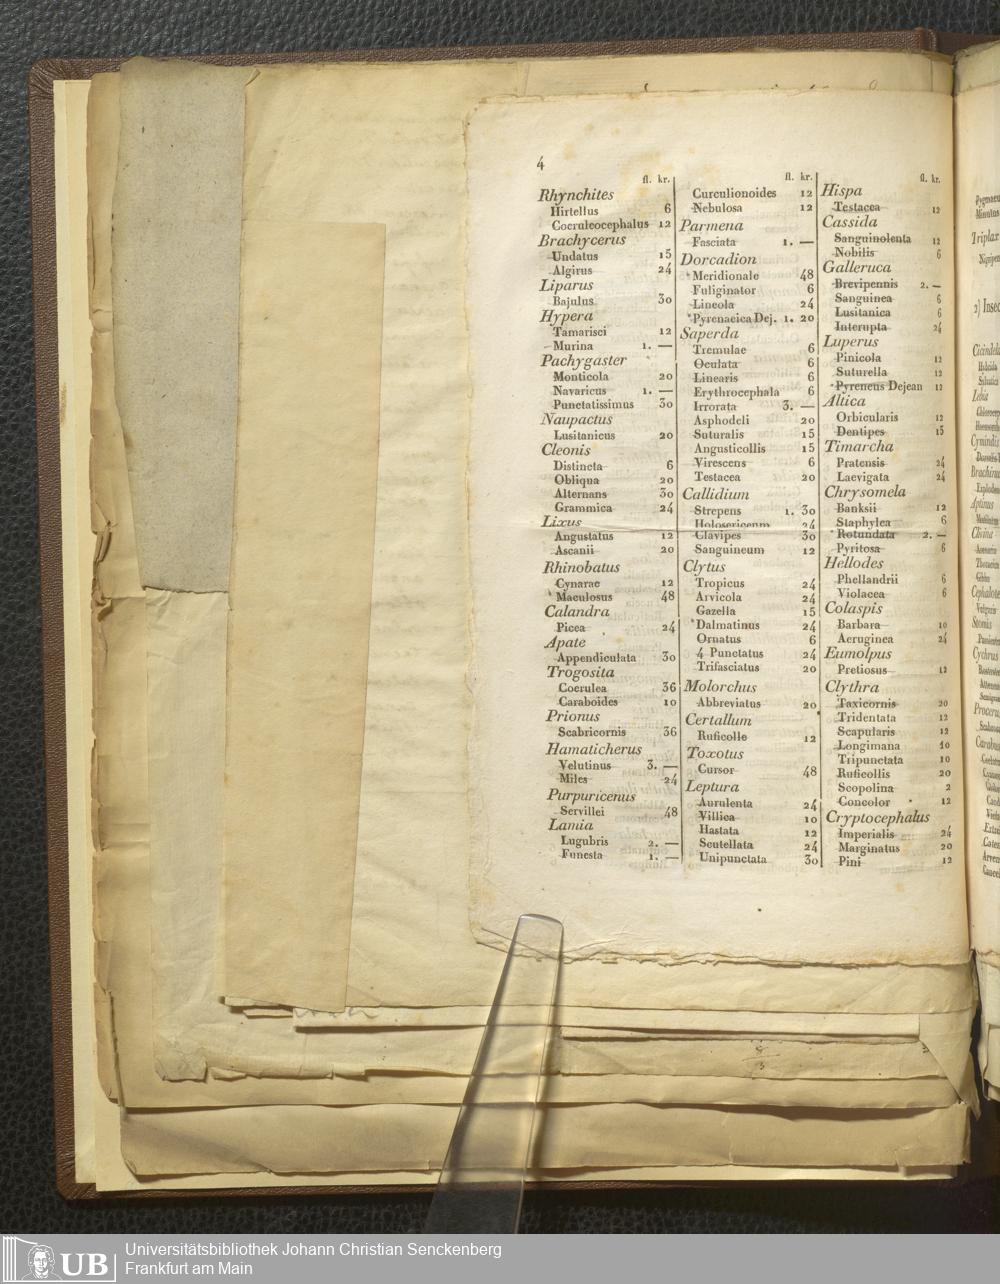 4
fl. kr.
Rhynchites
Hirtellus 6
Coeruleocephalus 12
Brachycerus
Undatus 15
Algirus 24
Liparus
Bajulus 30
Hypera
Tamarisci 12
Murina 1. —
Pachygaster
Monticola 20
Navaricus 1. —
Punctatissimus 30
Naupactus
Lusitanicus 20
Cleonis
Distincta 6
Obliqua 20
Alternans 30
Grammica 24
Lixus
Angustatus 12
Ascanii 20
Rhinobatus
Cynarae 12
Maculosus 48
Calandra
Picea 24
Apate
Appendiculata 30
Trogosita
Coerulea 36
Caraboides 10
Prionus
Scabricornis 36
Hamaticherus
Velutinus 3. —
Miles 24
Purpuricenus
Servillei 48
Lamia
Lugubris 2. —
Funesta 1. —
fl. kr.
Curculionoides 12
Nebulosa 12
Parmena
Fasciata 1. —
Dorcadion
*Meridionale 48
Fuliginator 6
Lineola 24
*Pyrenaeica Dej. 1. 20
Saperda
Tremulae 6
Oculata 6
Linearis 6
Erythrocephala 6
Irrorata 3. —
Asphodeli 20
Suturalis 15
Angusticollis 15
Virescens 6
Testacea 20
Callidium
Strepens 1. 30
Holosericeum 24
Clavipes 30
Sanguineum 12
Clytus
Tropicus 24
Arvicola 24
Gazella 15
*Dalmatinus 24
Ornatus 6
4 Punctatus 24
Trifasciatus 20
Molorchus
Abbreviatus 20
Certallum
Ruficolle 12
Toxotus
Cursor 48
Leptura
Aurulenta 24
Villica 10
Hastata 12
Scutellata 24
Unipunctata 30
fl. kr.
Hispa
Testacea 12
Cassida
Sanguinolenta 12
Nobilis 6
Galleruca
Brevipennis 2. —
Sanguinea 6
Lusitanica 6
Interupta 24
Luperus
Pinicola 12
Suturella 12
*Pyreneus Dejean 12
Altica
Orbicularis 12
Dentipes 15
Timarcha
Pratensis 24
Laevigata 24
Chrysomela
Banksii 12
Staphylea 6
*Rotundata 2. —
Pyritosa 6
Hellodes
Phellandrii 6
Violacea 6
Colaspis
Barbara 10
Aeruginea 24
Eumolpus
Pretiosus 12
Clythra
Taxicornis 20
Tridentata 12
Scapularis 12
Longimana 10
Tripunctata 10
Ruficollis 20
Scopolina 2
Concolor 12
Cryptocephalus
Imperialis 24
Marginatus 20
Pini 12
Triplax
2) Insec
Cicindela
Lebia
Cymindis
Brachinu
Aptinus
Clivina
Cephalote
Stomis
Cychrus
Procerus
Carabus
UB
Universitätsbibliothek Johann Christian Senckenberg
Frankfurt am Main